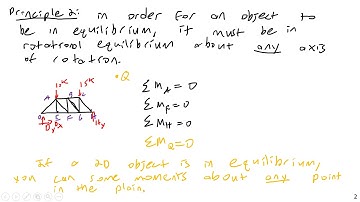 Principle 2: in order for an object to
be in equilibrium, it must be in
rotational equilibrium about any axis
of rotation.
10k 15k
•Q
ΣM_A = 0
ΣM_F = 0
ΣM_H = 0
ΣM_Q = 0
If a 2D object is in equilibrium,
you can some moments about any point
in the plain.
2